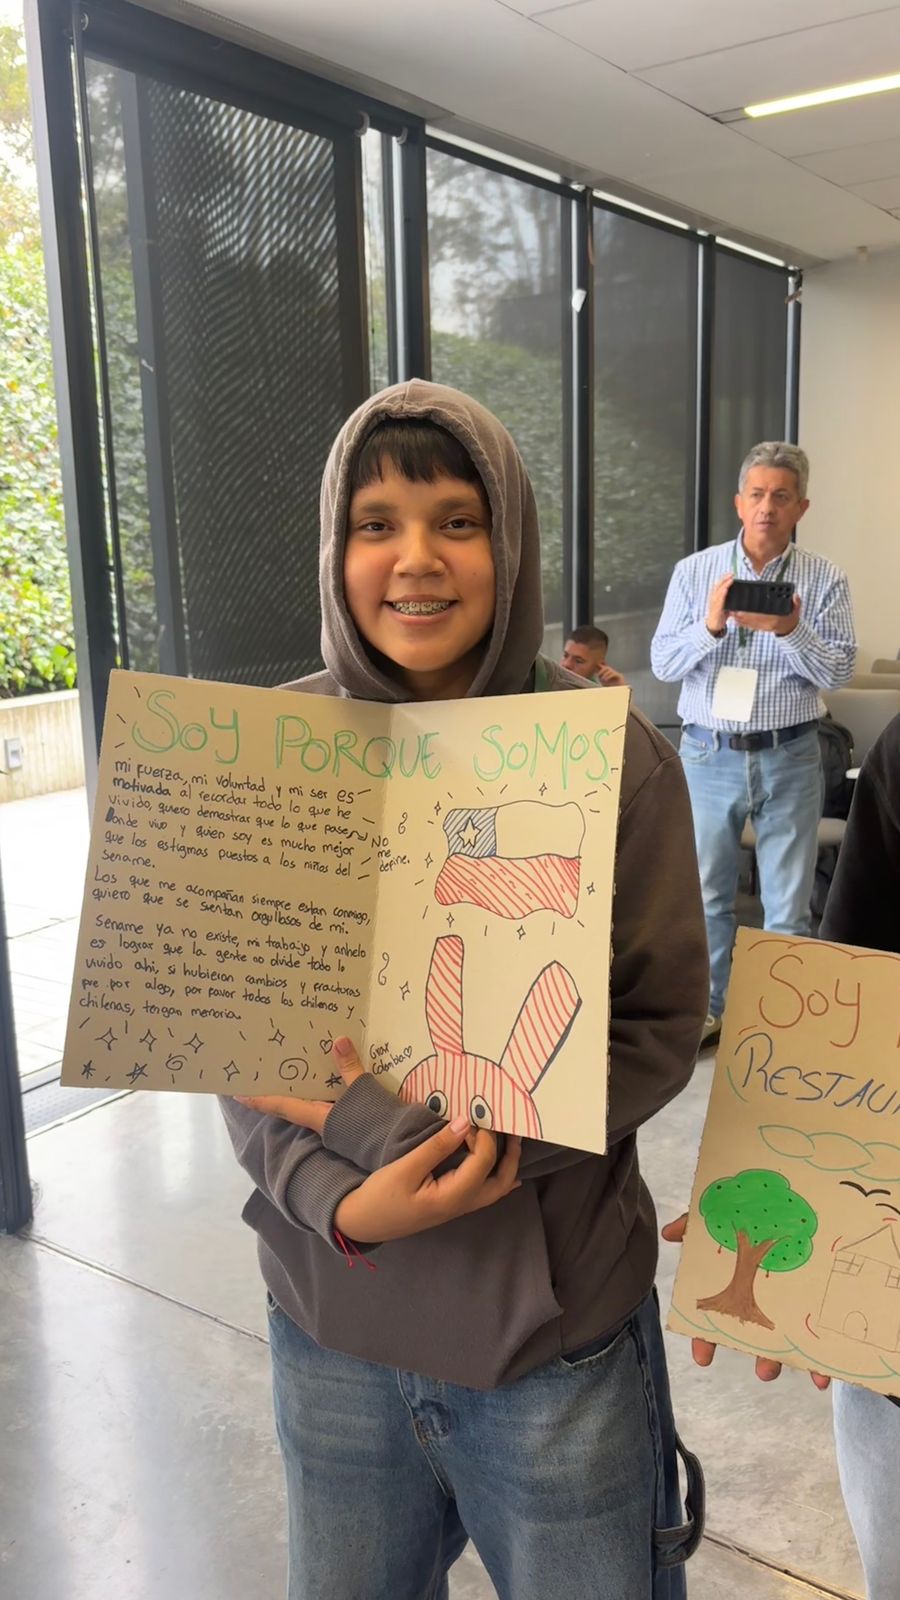 SOY PORQUE SOMOS
mi fuerza, mi voluntad y mi ser es
motivada al recordar todo lo que he
vivido, quiero demostrar que lo que pase,
Donde vivo y quien soy es mucho mejor
que los estigmas puestos a los niños del
sename.
Los que me acompañan siempre estan conmigo,
quiero que se sientan orgullosos de mi.
Sename ya no existe, mi trabajo y anhelo
es lograr que la gente no olvide todo lo
vivido ahi, si hubieron cambios y fracturas
fue por algo, por favor todos los chilenos y
chilenas, tengan memoria.
NO
me
define.
Colombia
SOY
RESTAU